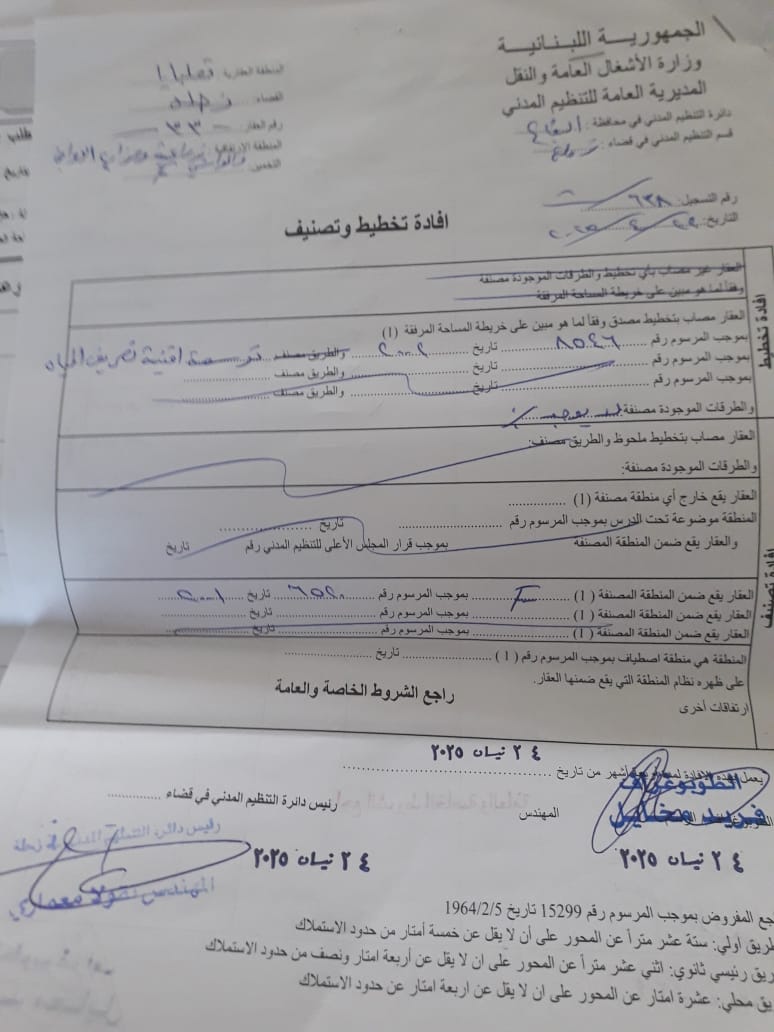 الجمهورية اللبنانية
وزارة الأشغال العامة والنقل
المديرية العامة للتنظيم المدني
دائرة التنظيم المدني في محافظة: البقاع
قسم التنظيم المدني في قضاء: زحلة
رقم التسجيل: ٦٣٨
التاريخ:
المنطقة العقارية
القضاء: زحلة
رقم العقار: ٣٣٠
افادة تخطيط وتصنيف
افادة تخطيط
العقار غير مصاب بأي تخطيط والطرقات الموجودة مصنفة
وفقاً لما هو مبين على خريطة المساحة المرفقة
العقار مصاب بتخطيط مصدق وفقاً لما هو مبين على خريطة المساحة المرفقة (1)
بموجب المرسوم رقم ٨٥٤٦ تاريخ ٢٠٠٢ والطريق مصنف اقنية تصريف المياه
بموجب المرسوم رقم تاريخ والطريق مصنف
بموجب المرسوم رقم تاريخ والطريق مصنف
والطرقات الموجودة مصنفة: لا يوجد
العقار مصاب بتخطيط ملحوظ والطريق مصنف:
والطرقات الموجودة مصنفة:
افادة تصنيف
العقار يقع خارج أي منطقة مصنفة (1)
المنطقة موضوعة تحت الدرس بموجب المرسوم رقم تاريخ
والعقار يقع ضمن المنطقة المصنفة بموجب قرار المجلس الأعلى للتنظيم المدني رقم تاريخ
العقار يقع ضمن المنطقة المصنفة (1) بموجب المرسوم رقم ٦٥٢٠ تاريخ ٢٠٠١
العقار يقع ضمن المنطقة المصنفة (1) بموجب المرسوم رقم تاريخ
العقار يقع ضمن المنطقة المصنفة (1) بموجب المرسوم رقم تاريخ
المنطقة هي منطقة اصطياف بموجب المرسوم رقم (1) تاريخ
على ظهره نظام المنطقة التي يقع ضمنها العقار.
ارتفاقات أخرى
راجع الشروط الخاصة والعامة
يعمل بهذه الافادة أشهر من تاريخ ٢٤ نيسان ٢٠٢٥
الطوبوغراف
فريد مخايل
المهندس
رئيس دائرة التنظيم المدني في قضاء
٢٤ نيسان ٢٠٢٥
رئيس دائرة التنظيم المدني في زحلة
المهندس نقولا معماري
٢٤ نيسان ٢٠٢٥
المفروض بموجب المرسوم رقم 15299 تاريخ 1964/2/5
طريق اولي: ستة عشر متراً عن المحور على أن لا يقل عن خمسة أمتار من حدود الاستملاك
رئيسي ثانوي: اثني عشر متراً عن المحور على ان لا يقل عن أربعة امتار ونصف من حدود الاستملاك
محلي: عشرة امتار عن المحور على ان لا يقل عن اربعة امتار عن حدود الاستملاك